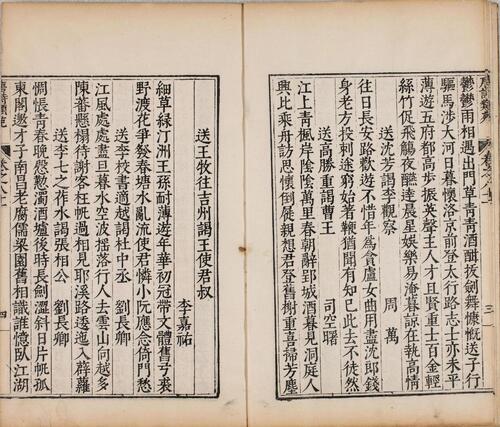 鬱鬱雨相遇出門草青青酒酣拔劍舞慷慨送子行
驅馬涉大河日暮懷洛京前登太行路志士亦未平
薄遊五府都高步振英聲主人才且賢重士百金輕
絲竹促飛觴夜醼達晨星娛樂易淹暮諒在執高情
送沈芳謁李觀察 周萬
往日長安路歡遊不惜年爲貪盧女曲用盡沈郎錢
身老方投刺途窮始著鞭猶聞有知己此去不徒然
送高勝重謁曹王 司空曙
江上青楓岸陰陰萬里春朝辭郢城酒暮見洞庭人
興比乘舟訪思懷倒屣親想君登舊榭重喜掃芳塵
送王牧往吉州謁王使君叔
李嘉祐
細草綠汀洲王孫耐薄遊年華初冠帶文體舊弓裘
野渡花爭發春塘水亂流使君憐小阮應念倚門愁
送李校書適越謁杜中丞 劉長卿
江風處處盡旦暮水空波搖落行人去雲山向越多
陳蕃懸榻待謝客枉帆過相見耶溪路逶迤入薜蘿
送李七之作水謁張相公 劉長卿
惆悵青春晚慇懃濁酒壚後時長劍澀斜日片帆孤
東閣邀才子南昌老腐儒梁園舊相識誰憶臥江湖
四